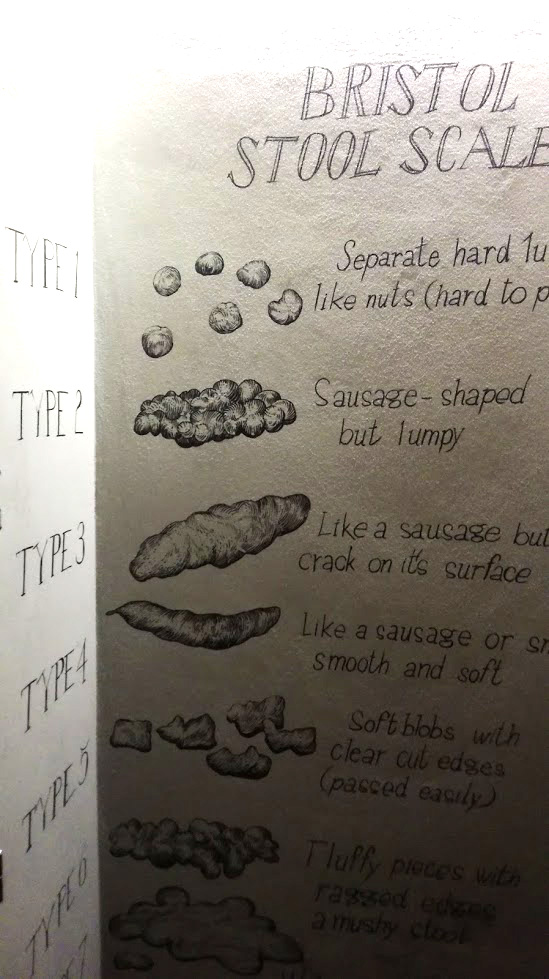 BRISTOL
STOOL SCALE
TYPE 1
Separate hard lu
like nuts (hard to p
TYPE 2
Sausage-shaped
but lumpy
TYPE 3
Like a sausage but
crack on it's surface
TYPE 4
Like a sausage or sn
smooth and soft
TYPE 5
Soft blobs with
clear cut edges
(passed easily)
TYPE 6
Fluffy pieces with
ragged edges
a mushy stool
7